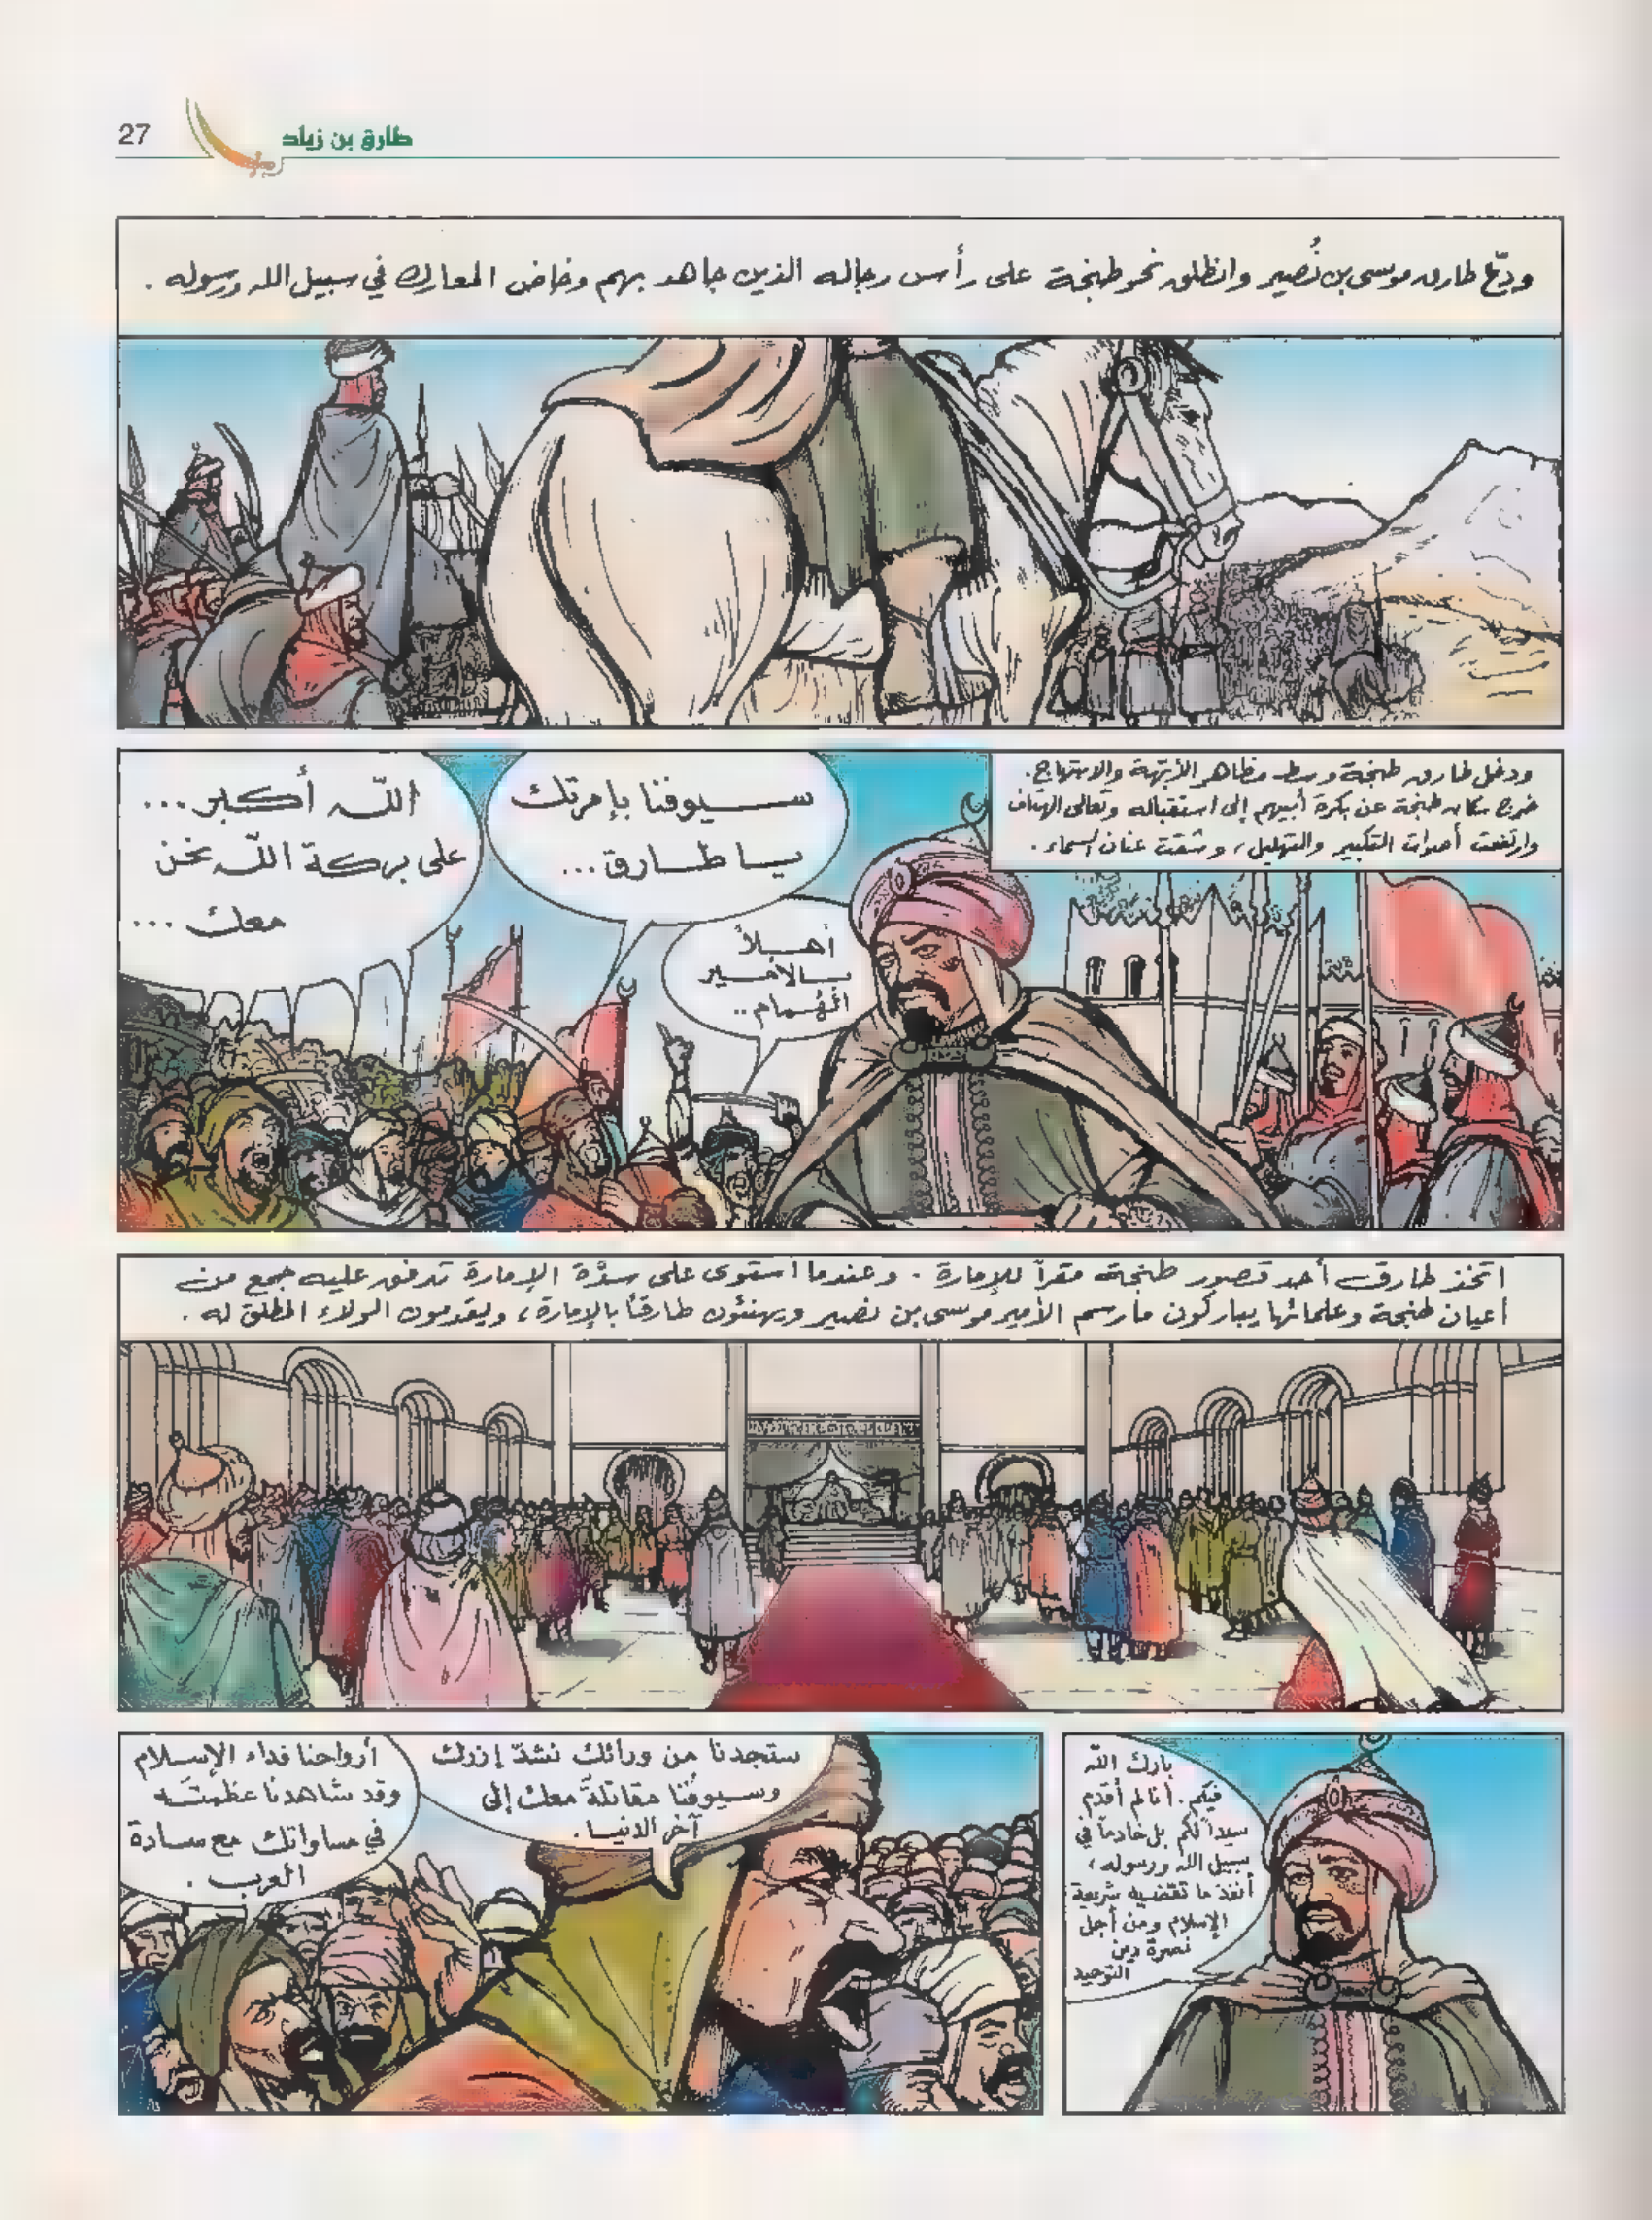 27
طارق بن زياد
ودّع طارق موسى بن نُصير وانطلق نحو طنجة على رأس رجاله الذين جاهد بهم وخاض المعارك في سبيل الله ورسوله .
ودخل طارق طنجة وسط مظاهر الأبّهة والابتهاج.
خرج سكان طنجة عن بكرة أبيهم إلى استقباله وتعالى الهتاف
وارتفعت أصوات التكبير والتهليل، وشقت عنان السماء .
أهـلاً
بـالأمـير
الهُـمام ..
سـيوفنا بإمرتك
يـا طـارق ...
اللّه أكبر ...
على بركة اللّه نحن
معك ...
اتخذ طارق أحد قصور طنجة مقراً للإمارة . وعندما استوى على سدّة الإمارة تدفق عليه جمع من
أعيان طنجة وعلمائها يباركون ما رسم الأمير موسى بن نصير ويهنئون طارقاً بالإمارة، ويقدمون الولاء المطلق له .
بارك اللّه
فيكم . أنا لم أقدم
سيداً لكم بل خادماً في
سبيل الله ورسوله،
أنفذ ما تقتضيه شريعة
الإسلام ومن أجل
نصرة دين
التوحيد
ستجدنا من ورائك نشدّ إزرك
وسيوفُنا مقاتلةً معك إلى
آخر الدنيـا .
أرواحنا فداء الإسـلام
وقد شاهدنا عظمتـه
في مساواتك مع سـادة
العرب .